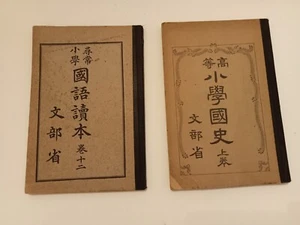 尋常
小學
國語讀本 卷十二
文部省
高等
小學國史 上卷
文部省